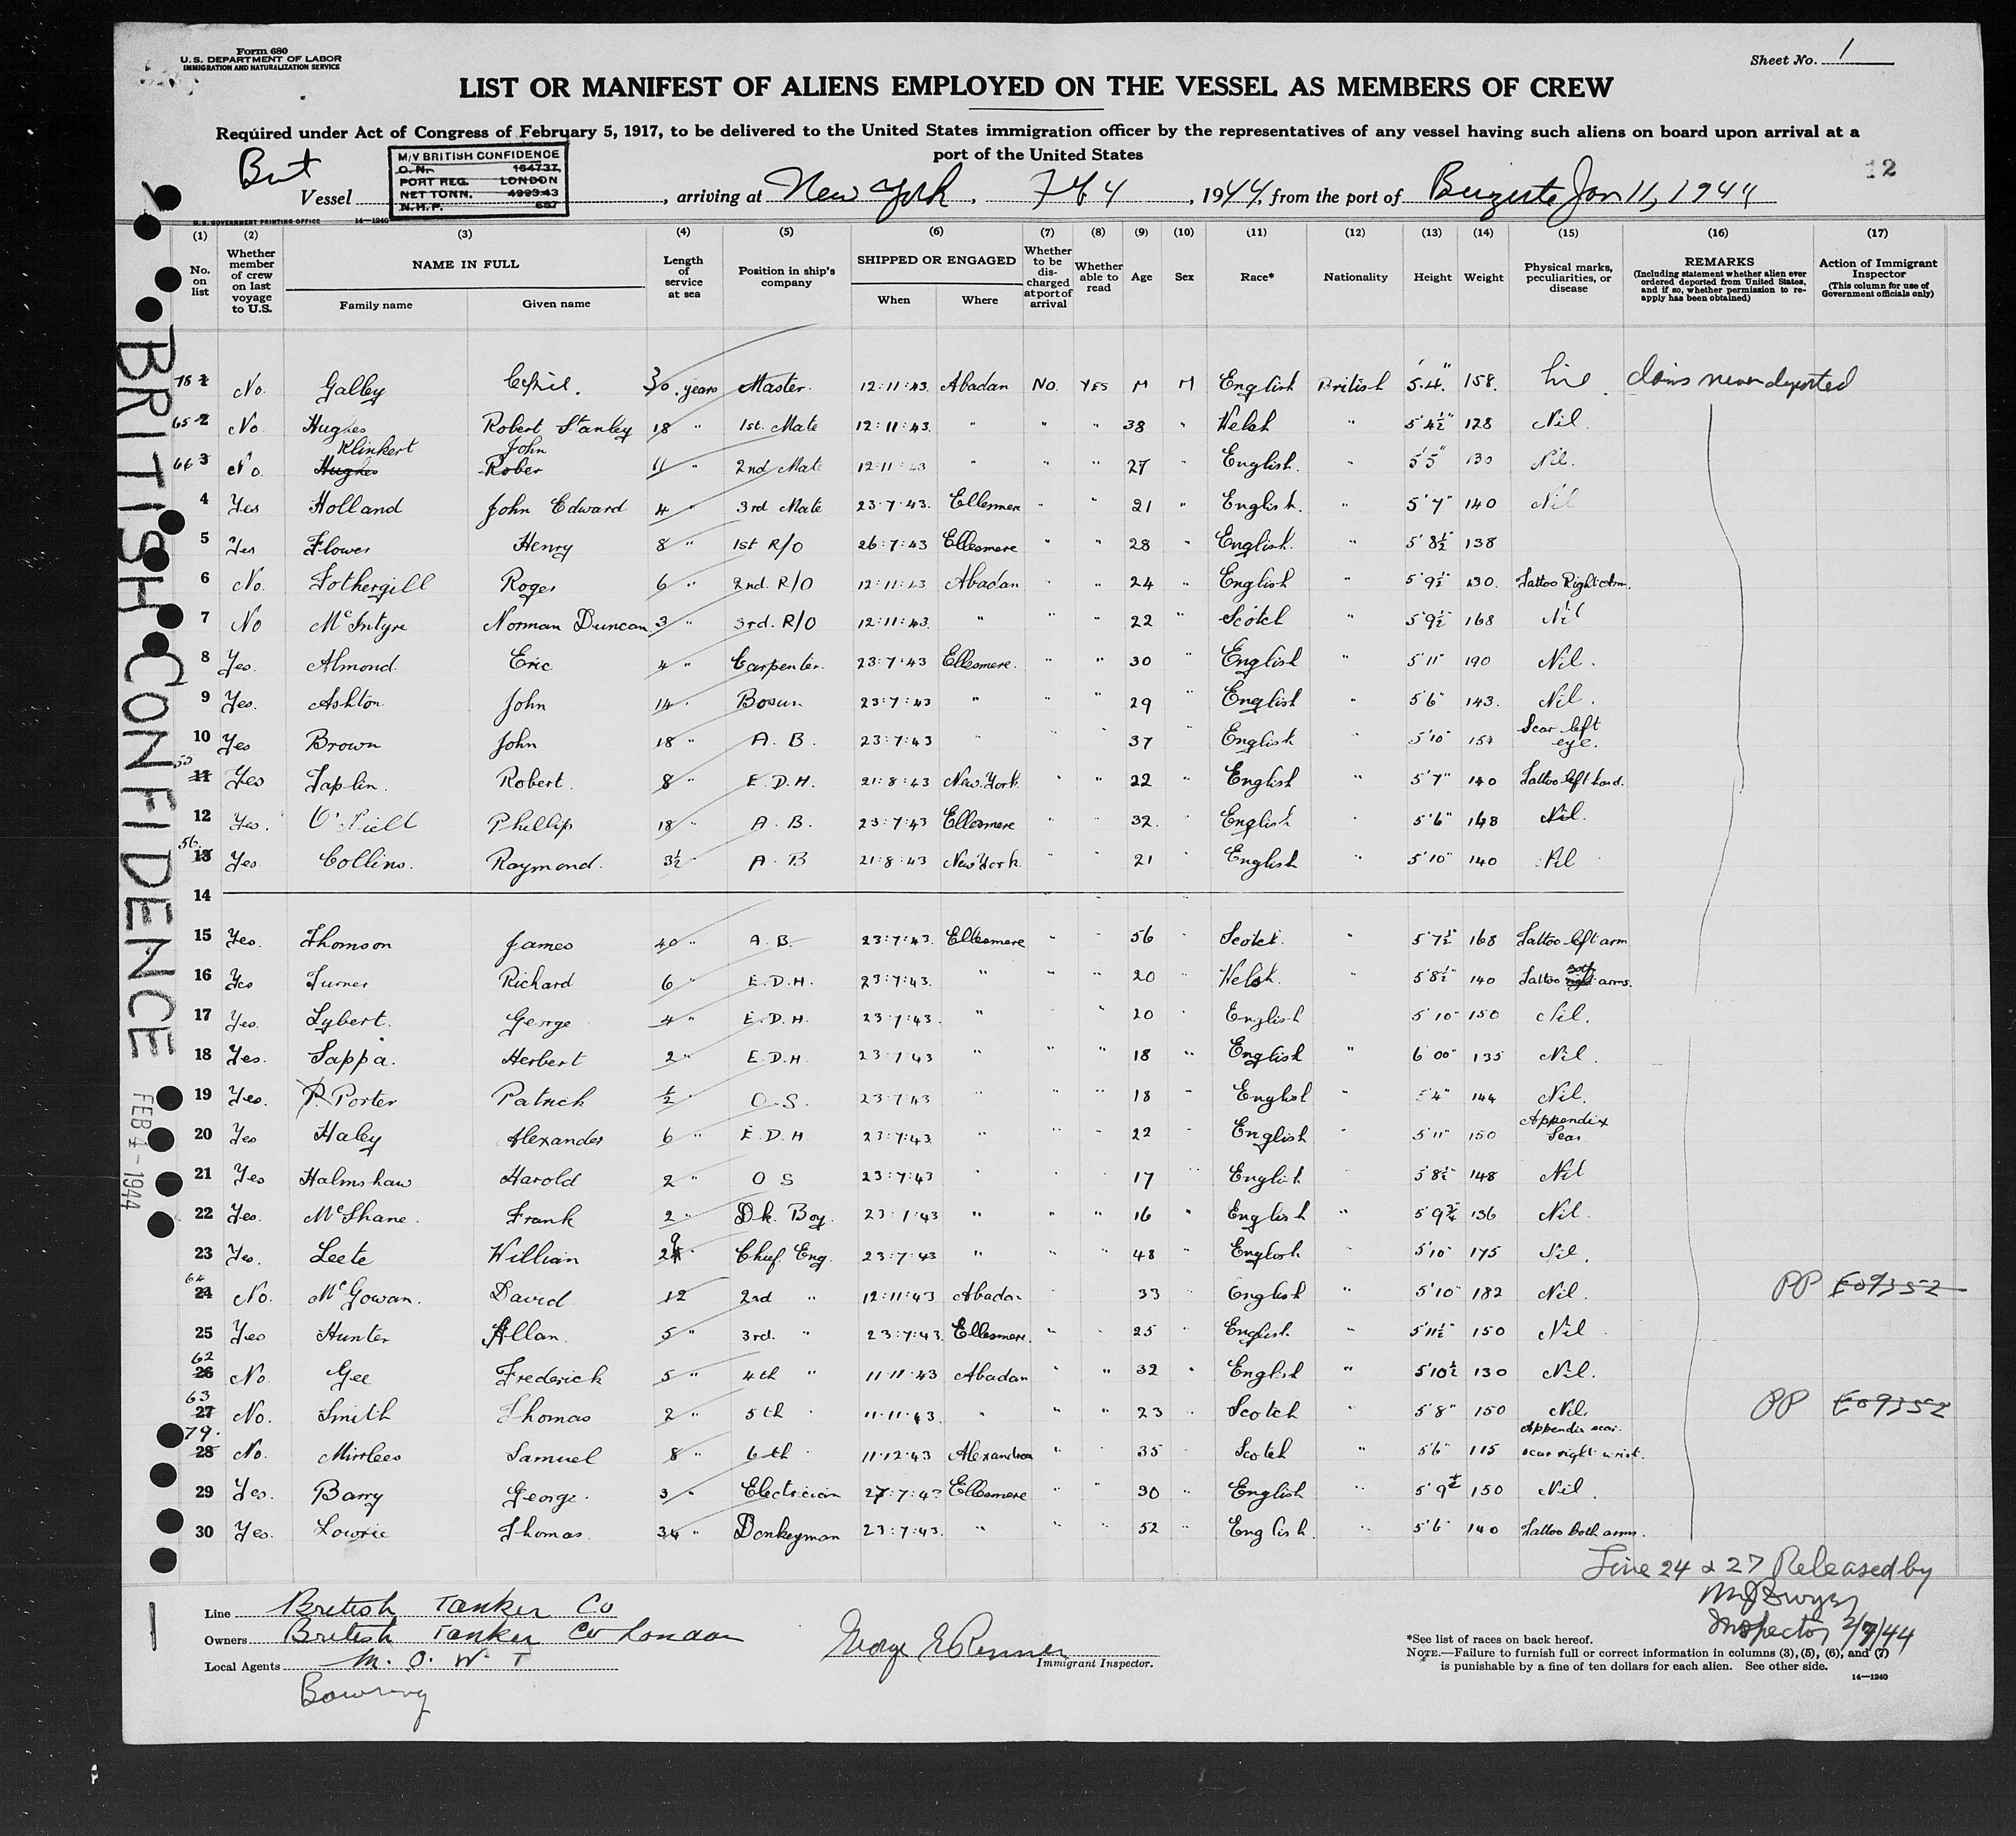 Form 680
U.S. DEPARTMENT OF LABOR
IMMIGRATION AND NATURALIZATION SERVICE
Sheet No. 1
LIST OR MANIFEST OF ALIENS EMPLOYED ON THE VESSEL AS MEMBERS OF CREW
Required under Act of Congress of February 5, 1917, to be delivered to the United States immigration officer by the representatives of any vessel having such aliens on board upon arrival at a
port of the United States
12
Brit
M/V BRITISH CONFIDENCE
O. N. 164737.
PORT REG. LONDON
NET TONN. 4993.43
N.H.P. 687
Vessel , arriving at New York , Feb 4 , 1944, from the port of Bizerte Jan 11, 1944
U. S. GOVERNMENT PRINTING OFFICE 14—1240
(1) (2) (3) (4) (5) (6) (7) (8) (9) (10) (11) (12) (13) (14) (15) (16) (17)
No. on list
Whether member of crew on last voyage to U.S.
NAME IN FULL
Family name Given name
Length of service at sea
Position in ship's company
SHIPPED OR ENGAGED
When Where
Whether to be discharged at port of arrival
Whether able to read
Age Sex Race* Nationality Height Weight
Physical marks, peculiarities, or disease
REMARKS
(Including statement whether alien ever ordered deported from United States, and if so, whether permission to reapply has been obtained)
Action of Immigrant Inspector
(This column for use of Government officials only)
78 1 No. Galley Cyril. 30 years Master. 12:11:43. Abadan No. YES M M English British 5.4." 158. claims never deported
65 2 No. Hughes Robert Stanley 18 " 1st. Mate 12:11:43. " " " 38 " Welsh " 5'4½" 128 Nil.
Klinkert John
66 3 No. Hughes Rober 11 " 2nd Mate 12:11:43 " " " 27 " English. " 5'5" 130 Nil.
4 Yes Holland John Edward 4 " 3rd Mate 23:7:43. Ellesmere " " 21 " English. " 5'7" 140 Nil
5 Yes Flower Henry 8 " 1st R/O 26:7:43 Ellesmere " " 28 " English. " 5'8½" 138
6 No. Fothergill Roger 6 " 2nd. R/O 12:11:43 Abadan " " 24 " English " 5'9½" 130. Tattoo Right Arm.
7 No McIntyre Norman Duncan 3 " 3rd. R/O 12:11:43. " " " 22 " Scotch " 5'9½" 168 Nil
8 Yes. Almond Eric 4 " Carpenter. 23:7:43 Ellesmere. " " 30 " English " 5'11" 190 Nil.
9 Yes. Ashton John 14 " Bosun 23:7:43 " " " 29 " English " 5'6" 143. Nil.
10 Yes Brown John 18 " A.B. 23:7:43 " " " 37 " English " 5'10" 154 Scar left eye.
11 Yes Taplin. Robert. 8 " E.D.H. 21:8:43 New York " " 22 " English " 5'7" 140 Tattoo left hand.
12 Yes. O'Niell Phillip 18 " A.B. 23:7:43 Ellesmere " " 32. " English " 5'6" 148 Nil.
56. 13 Yes. Collins. Raymond. 3½ " A.B 21:8:43 New York. " " 21 " English " 5'10" 140 Nil
14
15 Yes. Thomson James 40 " A.B. 23:7:43. Ellesmere " " 56 " Scotch. " 5'7½" 168 Tattoo left arm
16 Yes Turner Richard 6 " E.D.H. 23:7:43. " " " 20 " Welsh. " 5'8½" 140 Tattoo both right arms.
17 Yes. Lybert. George 4 " E.D.H. 23:7:43. " " 20 " English 5'10" 150 Nil.
18 Yes. Sappa. Herbert 2 " E.D.H. 23:7:43 " " " 18 " English " 6'00" 135 Nil.
19 Yes. P. Porter Patrick ½ " O.S. 23:7:43 " " " 18 " English " 5'4" 144 Nil.
20 Yes Haley Alexander 6 " E.D.H 23:7:43 " " " 22 " English " 5'11" 150 Appendix Scar
21 Yes Halmshaw Harold 2 " O S 23:7:43 " " " 17 " English 5'8½" 148 Nil
22 Yes. McShane. Frank 2 " Dk. Boy. 23:7:43 " " " 16 " English " 5'9¾" 136 Nil
23 Yes. Leete William 29 " Chief. Eng 23:7:43 " " " 48 " English " 5'10" 175 Nil.
64 24 No. McGowan. David 12 2nd " 12:11:43 Abadan " 33 English " 5'10" 182 Nil. PP E09352
25 Yes Hunter Allan. 5 " 3rd. " 23:7:43. Ellesmere. " " 25 " English. " 5'11½" 150 Nil
62 26 No. Gee Frederick 5 " 4th " 11:11:43 Abadan " " 32 " English " 5'10½ 130 Nil.
63 27 No. Smith Thomas 2 " 5th " 11:11:43. " " " 23 " Scotch " 5'8" 150 Nil. PP E09352
79. 28 No. Mirrlees Samuel 8 " 6th " 11:12:43 Alexandria " " 35 " Scotch " 5'6" 115 Appendix scar. scar right wrist.
29 Yes. Barry George. 3 " Electrician 27:7:43 Ellesmere " " 30 " English " 5'9½ 150 Nil.
30 Yes. Lowrie Thomas. 34 " Donkeyman 23:7:43. " " " 52 " English. " 5'6" 140 Tattoo both arms.
Line 24 & 27 Released by
MJ Dwyer
Inspector 2/7/44
Line British Tanker Co
Owners British Tanker Co London
Local Agents M. O. W. T
Bowring
George E Renner
Immigrant Inspector.
*See list of races on back hereof.
NOTE.—Failure to furnish full or correct information in columns (3), (5), (6), and (7)
is punishable by a fine of ten dollars for each alien. See other side.
14—1240
BRITISH CONFIDENCE
FEB 4 - 1944